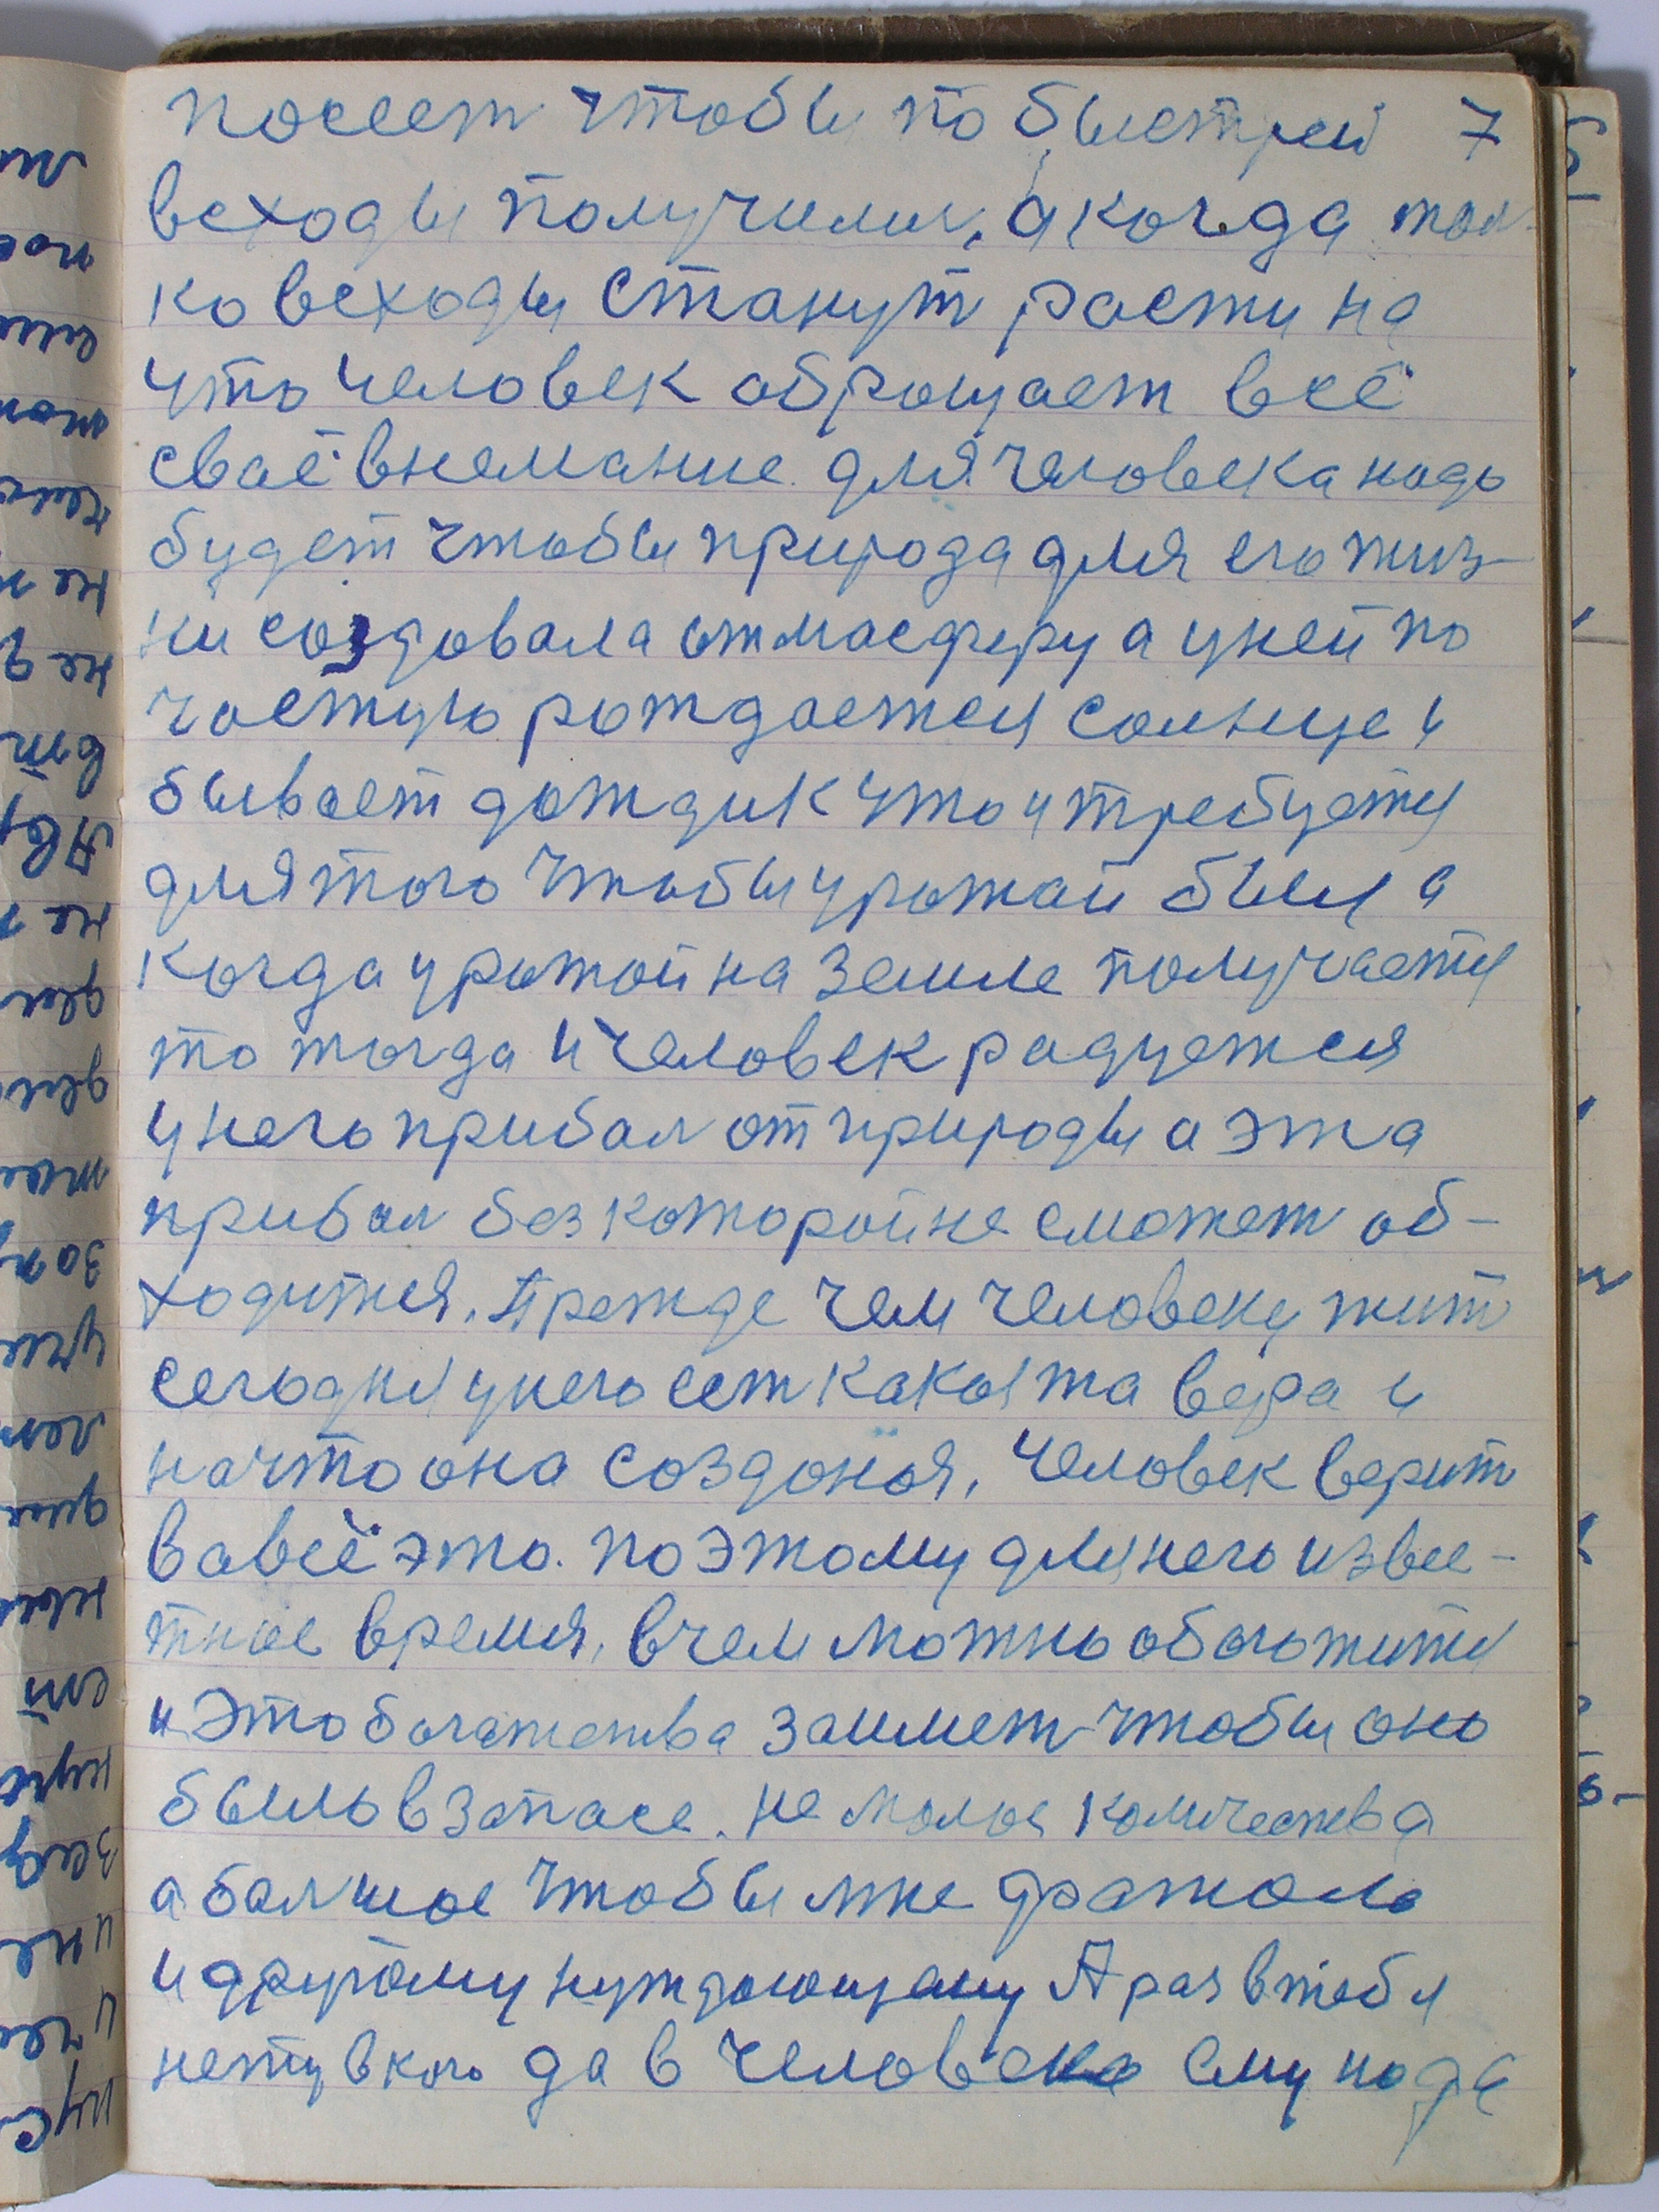 посеет чтобы по быстрей 7
всходы получили, а когда тол-
ко всходы станут расти на
что человек оброщает всё
сваё внемание для человека надо
будет чтобы природа для его жиз-
ни создовала отмасферу а у ней по
частую рождается солнце и
бывает дождик что и требуется
для того чтобы урожай был а
когда урожай на земле получается
то тогда и человек радуется
у него прибал от природы а эта
прибал без которой не сможет об-
ходится. Прежде чем человеку жит
сегодня у него ест какоя та вера и
на что она создоноя, человек верит
ва всё это. поэтому для него извес-
тное время, в чем можно обогожится
и это богатства заимет чтобы оно
было в запасе. не малое количества
а балшое чтобы мне фатоло
и другому нуждающему А раз в тебя
нету в кого да в человека ему нада